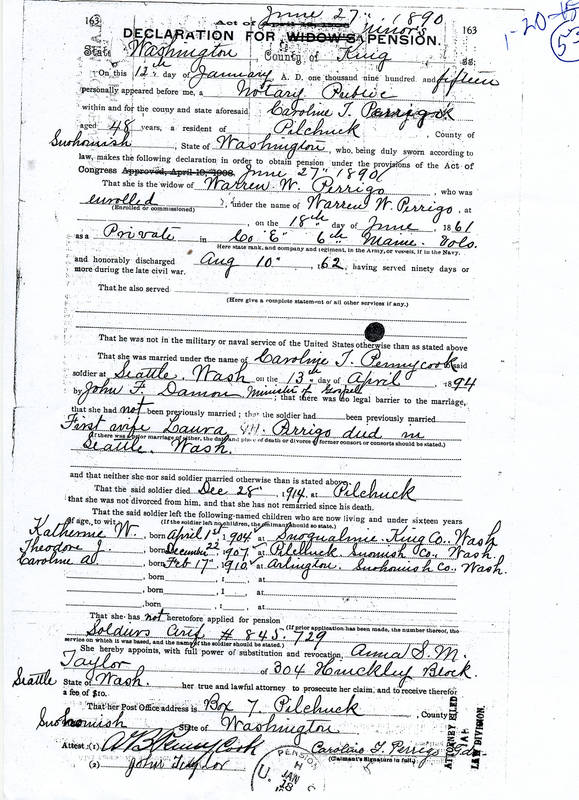 163
Act of April 19, 1908 June 27" 1890
163
1-20-15
53
DECLARATION FOR WIDOW'S Minor's PENSION.
State Washington County of King ss:
On this 12th day of January A. D. one thousand nine hundred and fifteen
personally appeared before me, a Notary Public
within and for the county and state aforesaid Caroline T. Perrigo
aged 48 years, a resident of Pilchuck, County of
Snohomish, State of Washington, who, being duly sworn according to
law, makes the following declaration in order to obtain pension under the provisions of the Act of
Congress Approved, April 19, 1908. June 27" 1890
That she is the widow of Warren W. Perrigo, who was
enrolled, under the name of Warren W. Perrigo, at
(Enrolled or commissioned)
, on the 18th day of June, 1861
as a Private in Co "E" 6th Maine Vols.
Here state rank, and company and regiment, in the Army, or vessels, if in the Navy.
and honorably discharged Aug 10", 1862, having served ninety days or
more during the late civil war.
That he also served
(Here give a complete statement of all other services if any.)
That he was not in the military or naval service of the United States otherwise than as stated above
That she was married under the name of Caroline T. Pennycook said
soldier at Seattle, Wash on the 13th day of April 1894
by John F. Damon Minister of Gospel; that there was no legal barrier to the marriage,
that she had not been previously married; that the soldier had been previously married
First wife Laura M. Perrigo died in
(If there was a prior marriage of either, the date and place of death or divorce of former consort or consorts should be stated.)
Seattle. Wash.
and that neither she nor said soldier married otherwise than is stated above
That the said soldier died Dec 28, 1914, at Pilchuck
that she was not divorced from him, and that she has not remarried since his death.
That the said soldier left the following-named children who are now living and under sixteen years
of age, to wit: (If the soldier left no children, the claimant should so state.)
Katherine W., born April 1st 1904 at Snoqualmie. King Co. Wash
Theodore J., born December 22, 1907 at Pilchuck Snomish Co., Wash.
Caroline A., born Feb 17", 1910 at Arlington. Snohomish Co., Wash.
, born , 1 , at
, born , 1 , at
, born , 1 , at
That she has not heretofore applied for pension
Soldiers Crif # 845.729 (If prior application has been made, the number thereof, the
service on which it was based, and the name of the soldier should be stated.)
She hereby appoints, with full power of substitution and revocation, Anna S. M.
Taylor of 304 Hinckley Block
Seattle State of Wash. her true and lawful attorney to prosecute her claim, and to receive therefor
a fee of $10.
That her Post Office address is Box 7, Pilchuck, County
Snohomish State of Washington
Attest: (1) A B Pennycook Caroline T. Perrigo Gdn
(2) John Taylor (Claimant's Signature in full.)
PENSION
U. S.
JAN
18
ATTORNEY FILED
LAW DIVISION.